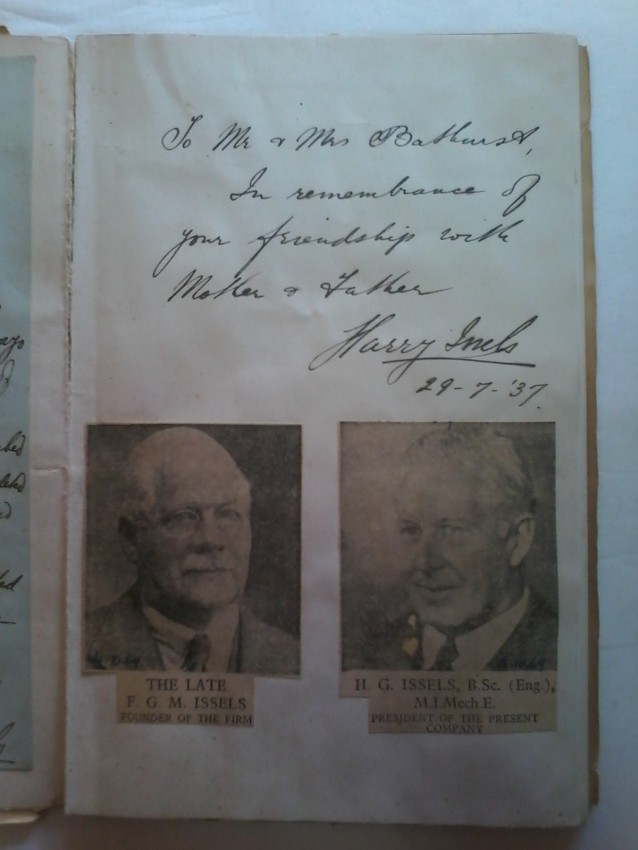 To Mr & Mrs Bathurst,
In remembrance of
your friendship with
Mother & Father
Harry Issels
29-7-'37.
THE LATE
F. G. M. ISSELS
FOUNDER OF THE FIRM
H. G. ISSELS, B.Sc. (Eng.),
M.I.Mech.E.
PRESIDENT OF THE PRESENT
COMPANY